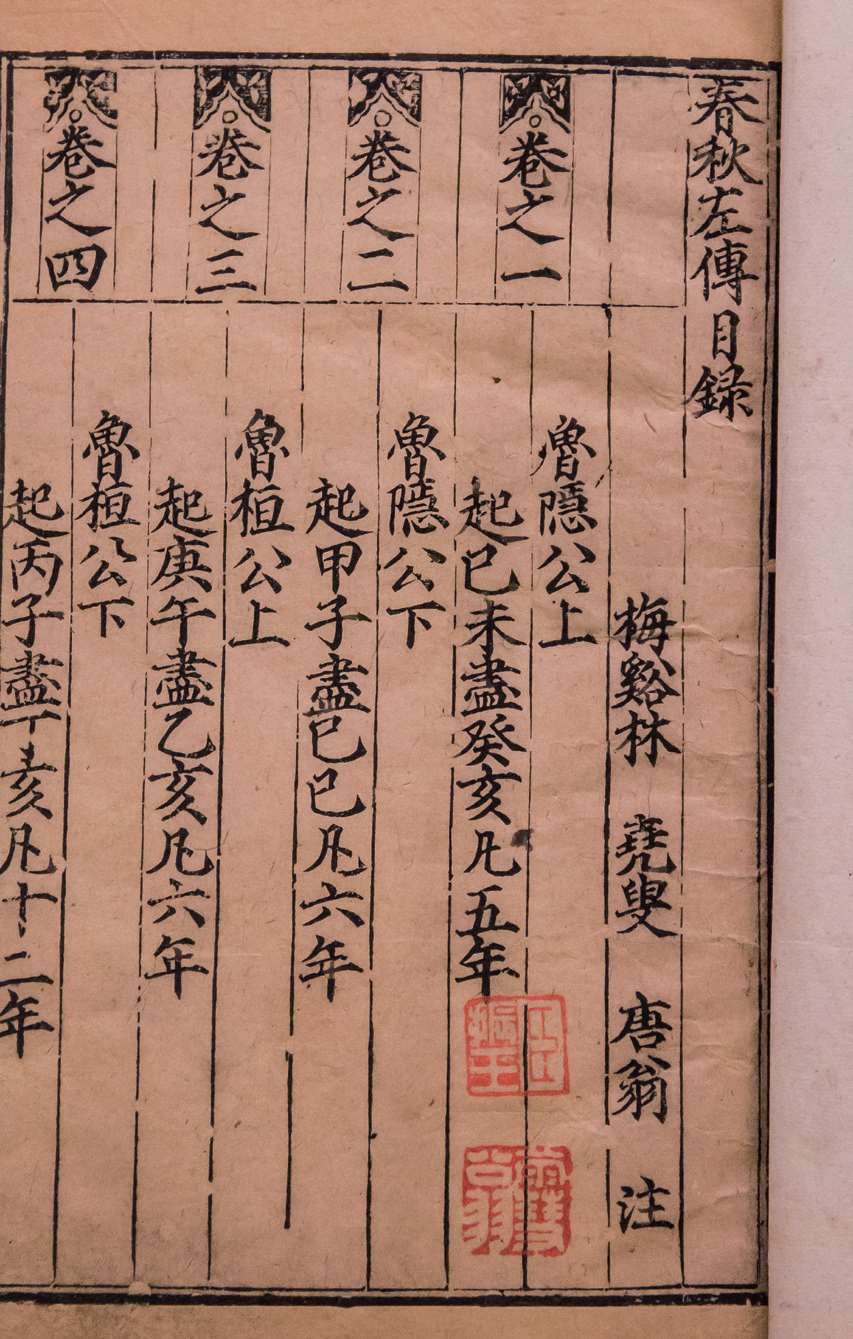 春秋左傳目録
梅谿林 堯叟 唐翁 注
卷之一
魯隱公上
起己未盡癸亥凡五年
卷之二
魯隱公下
起甲子盡己巳凡六年
卷之三
魯桓公上
起庚午盡乙亥凡六年
卷之四
魯桓公下
起丙子盡丁亥凡十二年